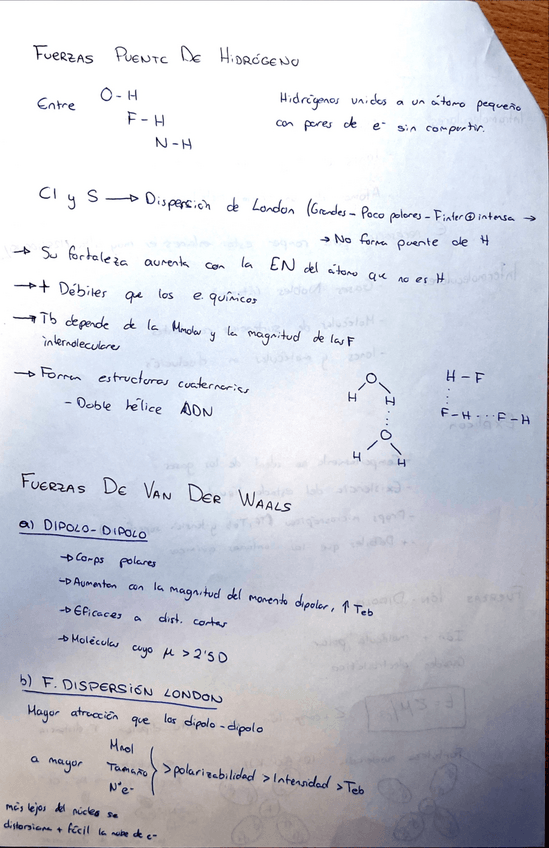 FUERZAS PUENTE DE HIDRÓGENO
Entre
O-H
F-H
N-H
Hidrógenos unidos a un átomo pequeño
con pares de e- sin compartir.
Cl y S → Dispersión de London (Grandes-Poco polares-F inter ⊕ intensa →
→ No forma puente de H
→ Su fortaleza aumenta con la EN del átomo que no es H
→ + Débiles que los e. químicos
→ Tb depende de la Mmolar y la magnitud de las F
intermoleculares
→ Forman estructuras cuaternarias
- Doble hélice ADN
O
H H
O
H H
H-F
F-H···F-H
FUERZAS DE VAN DER WAALS
a) DIPOLO-DIPOLO
→ Comps polares
→ Aumentan con la magnitud del momento dipolar, ↑ Teb
→ Eficaces a dist. cortas
→ Moléculas cuyo μ > 2'5 D
b) F. DISPERSIÓN LONDON
Mayor atracción que las dipolo-dipolo
a mayor
Mmol
Tamaño
Nºe-
> polarizabilidad > Intensidad > Teb
más lejos del núcleo se
distorsiona + fácil la nube de e-